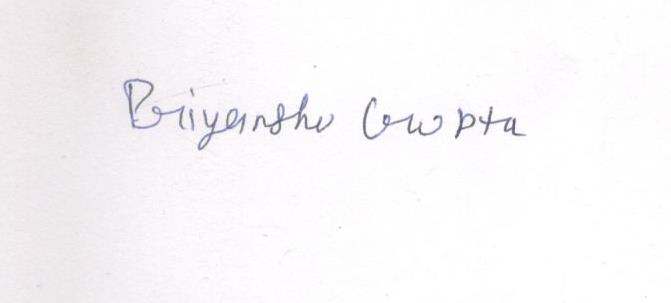 Priyanshu Gupta